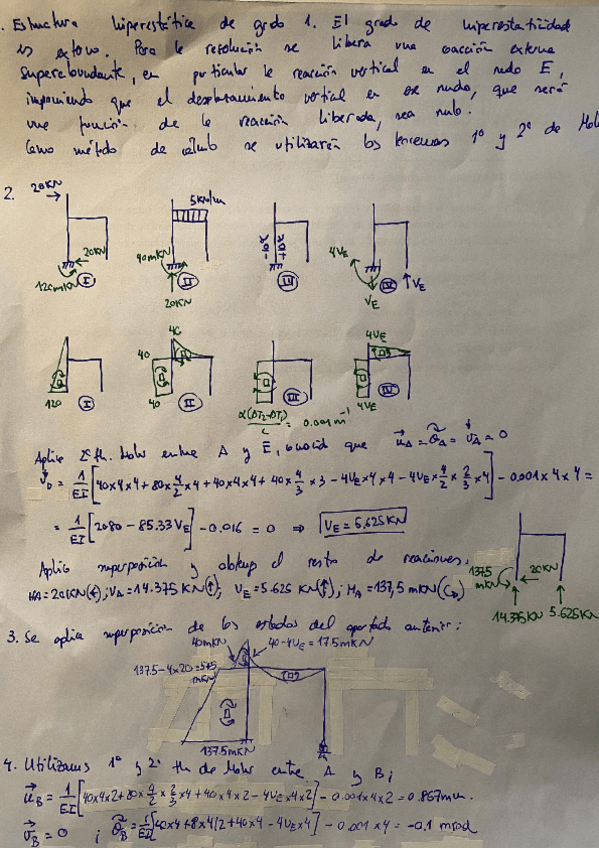 . Estructura hiperestática de grado 1. El grado de hiperestaticidad
es externo. Para la resolución se libera una coacción externa
superabundante, en particular la reacción vertical en el nudo E,
imponiendo que el desplazamiento vertical en ese nudo, que será
una función de la reacción liberada, sea nulo.
Como método de cálculo se utilizarán los teoremas 1º y 2º de Moh
2.
20KN 5KN/m
20KN 120mKN I
40mKN 20KN II
-20º +20º III
4VE VE VE IV
120 I
40 40 40 II
α(ΔT2-ΔT1)/c = 0.001m⁻¹ III
4VE 4VE IV
Aplico 2º th. Mohr entre A y E, sabiendo que u⃗A = θA = vA = 0
vD = 1/EI [40×4×4+80×4/2×4+40×4×4+40×4/3×3-4VE×4×4-4VE×4/2×2/3×4] - 0.001×4×4 =
= 1/EI [2080-85.33VE] - 0.016 = 0 ⇒ VE = 5,625KN
Aplico superposición y obtengo el resto de reacciones:
HA=20KN(←); VA=14.375 KN(↑); VE=5.625 KN(↑); MA=137,5 mKN
137.5 mKN 20KN
14.375KN 5.625KN
3. Se aplica superposición de los estados del apartado anterior:
40mKN 40-4VE=17.5mKN
137.5-4×20=57.5 mKN
137.5mKN
4. Utilizamos 1º y 2º th de Mohr entre A y B;
u⃗B = 1/EI [40×4×2+80×4/2×2/3×4+40×4×2-4VE×4×2] - 0.001×4×2 = 0.867mm.
v⃗B = 0 ; θB = 1/EI [40×4+8×4/2+40×4-4VE×4] - 0.001×4 = -0.1 mrad